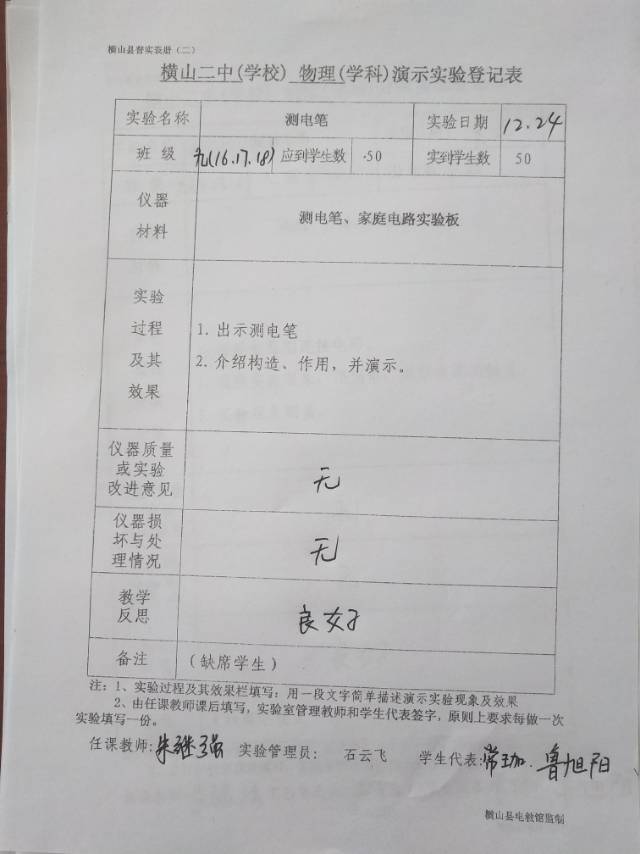 横山县普实表册（二）
横山二中(学校) 物理(学科)演示实验登记表
实验名称 测电笔 实验日期 12.24
班 级 九(16.17.18) 应到学生数 50 实到学生数 50
仪器
材料
测电笔、家庭电路实验板
实验
过程
及其
效果
1. 出示测电笔
2. 介绍构造、作用，并演示。
仪器质量
或实验
改进意见
无
仪器损
坏与处
理情况
无
教学
反思
良好
备注 (缺席学生)
注：1、实验过程及其效果栏填写：用一段文字简单描述演示实验现象及效果
2、由任课教师课后填写，实验室管理教师和学生代表签字，原则上要求每做一次
实验填写一份。
任课教师：朱继强 实验管理员： 石云飞 学生代表：常珈. 鲁旭阳
横山县电教馆监制